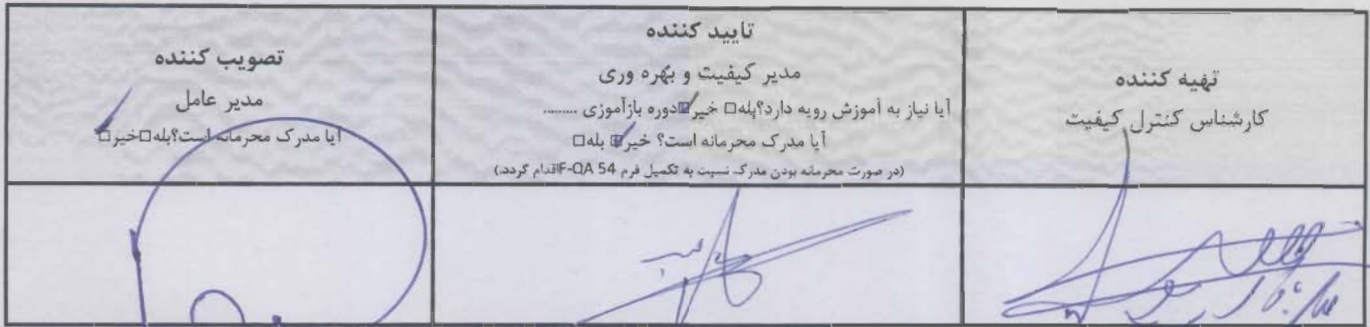 تهیه کننده
کارشناس کنترل کیفیت
تایید کننده
مدیر کیفیت و بهره وری
آیا نیاز به آموزش رویه دارد؟بله□ خیر☑دوره بازآموزی ........
آیا مدرک محرمانه است؟ خیر☑ بله□
(در صورت محرمانه بودن مدرک نسبت به تکمیل فرم F-QA 54اقدام گردد.)
تصویب کننده
مدیر عامل
آیا مدرک محرمانه است؟بله□خیر☑